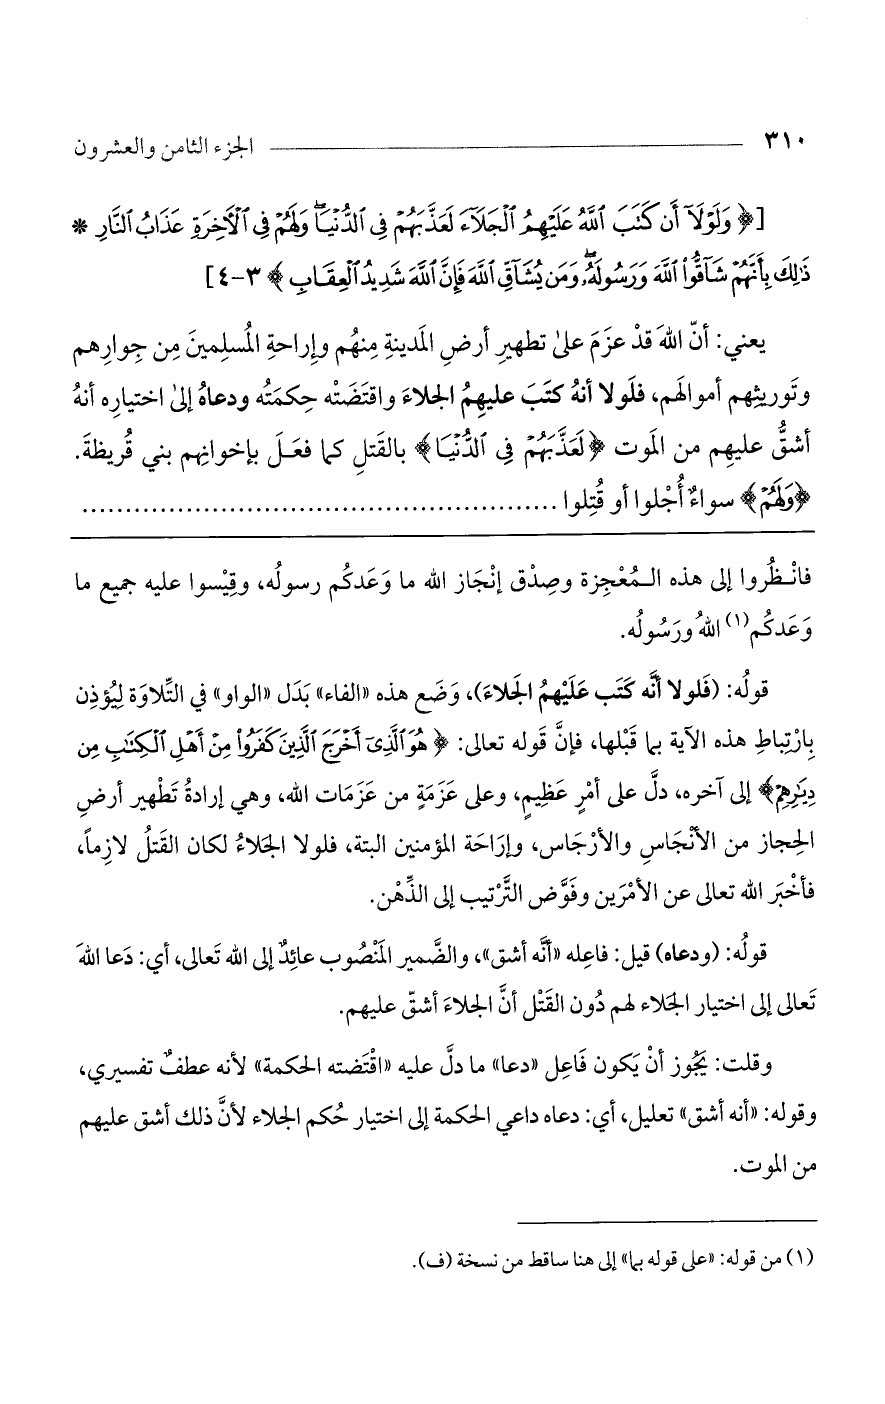 ٣١٠ ــــــــــ الجزء الثامن والعشرون
[﴿وَلَوْلَآ أَن كَتَبَ ٱللَّهُ عَلَيْهِمُ ٱلْجَلَآءَ لَعَذَّبَهُمْ فِى ٱلدُّنْيَا ۖ وَلَهُمْ فِى ٱلْأَخِرَةِ عَذَابُ ٱلنَّارِ *
ذَٰلِكَ بِأَنَّهُمْ شَآقُّوا۟ ٱللَّهَ وَرَسُولَهُۥ ۖ وَمَن يُشَآقِّ ٱللَّهَ فَإِنَّ ٱللَّهَ شَدِيدُ ٱلْعِقَابِ﴾ ٣-٤]
يعني: أنّ اللهَ قدْ عزَمَ علىٰ تطهيرِ أرضِ المَدينةِ مِنهُم وإراحةِ المُسلمِينَ مِن جِوارِهم
وتَوريثِهم أموالَهم، فلَولا أنهُ كتَبَ عليهِمُ الجلاءَ واقتَضَتْه حِكمَتُه ودعاهُ إلىٰ اختيارِه أنهُ
أشقُّ عليهِم من المَوت ﴿لَعَذَّبَهُمْ فِى ٱلدُّنْيَا﴾ بالقَتلِ كما فعَلَ بإخوانِهم بني قُريظةَ.
﴿وَلَهُمْ﴾ سواءٌ أُجْلوا أو قُتِلوا ........................................................
فانْظُروا إلى هذه المُعْجِزة وصِدْق إنْجَاز الله ما وَعَدكُم رسولُه، وقِيْسوا عليه جميع ما
وَعَدكُم(١) اللهُ ورَسُولُه.
قولُه: (فَلولا أنَّه كتَب عَلَيْهمُ الجَلاءَ)، وَضَع هذه «الفاء» بَدَل «الواو» في التِّلاوَة لِيُؤذِن
بِارْتِباطِ هذه الآية بما قَبْلها، فإنَّ قَوله تعالى: ﴿هُوَ ٱلَّذِىٓ أَخْرَجَ ٱلَّذِينَ كَفَرُوا۟ مِنْ أَهْلِ ٱلْكِتَٰبِ مِن
دِيَٰرِهِمْ﴾ إلى آخره، دلَّ على أمْرٍ عَظِيمٍ، وعلى عَزَمَةٍ من عَزَمات الله، وهي إرادةُ تَطْهير أرضِ
الحِجاز من الأنْجَاسِ والأرْجَاس، وإرَاحَة المؤمنين البتة، فلولا الجَلاءُ لكان القَتلُ لازِماً،
فأخْبَر الله تعالى عن الأمْرَين وفَوَّض التَّرْتيب إلى الذِّهْن.
قولُه: (ودعاه) قيل: فاعِله «أنَّه أشق»، والضَّمير المَنْصُوب عائِدٌ إلى الله تَعالى، أي: دَعا اللهَ
تَعالى إلى اختيار الجَلاء لهم دُون القَتْل أنَّ الجلاءَ أشقّ عليهم.
وقلت: يَجُوز أنْ يَكون فَاعِل «دعا» ما دلَّ عليه «اقْتَضته الحكمة» لأنه عطفٌ تفسيري،
وقوله: «أنه أشق» تعليل، أي: دعاه داعي الحكمة إلى اختيار حُكم الجلاء لأنَّ ذلك أشق عليهم
من الموت.
(١) من قوله: «على قوله بما» إلى هنا ساقط من نسخة (ف).